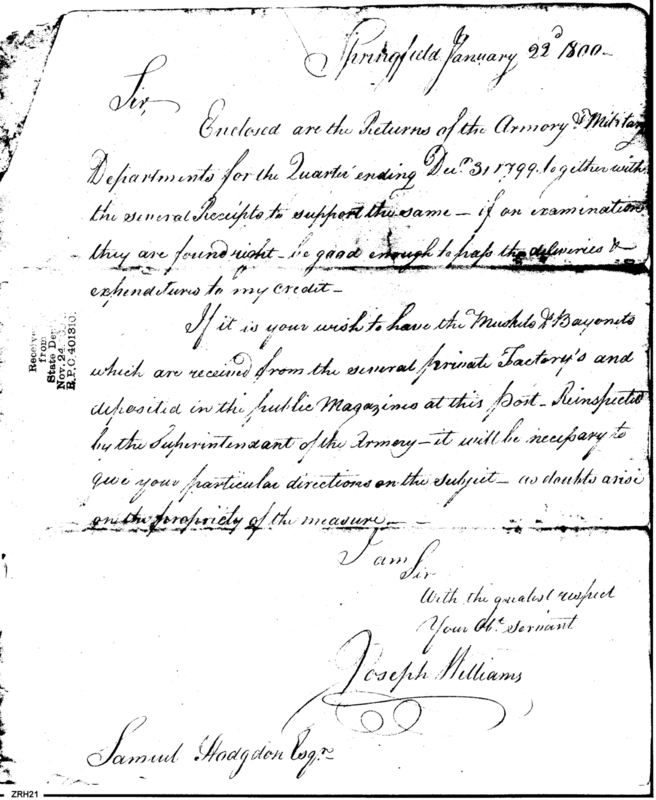 Springfield January 22d 1800-
Sir,
Enclosed are the Returns of the Armory & Military
Departments for the Quarter ending Decr 31 1799. together with
the several Receipts to support the same – if on examination
they are found right – be good enough to pass the deliveries &
expenditures to my credit –
If it is your wish to have the Muskets & Bayonets
which are received from the several private Factory's and
deposited in the public Magazines at this post – Reinspected
by the Superintendant of the Armory – it will be necessary to
give your particular directions on the subject – as doubts arise
on the propriety of the measure –
I am
Sir
With the greatest respect
Your Obt. Servant
Joseph Williams
Samuel Hodgdon Esqr.
Received
from
State Dep
Nov. 24
R.P.C. 401310.
ZRH21